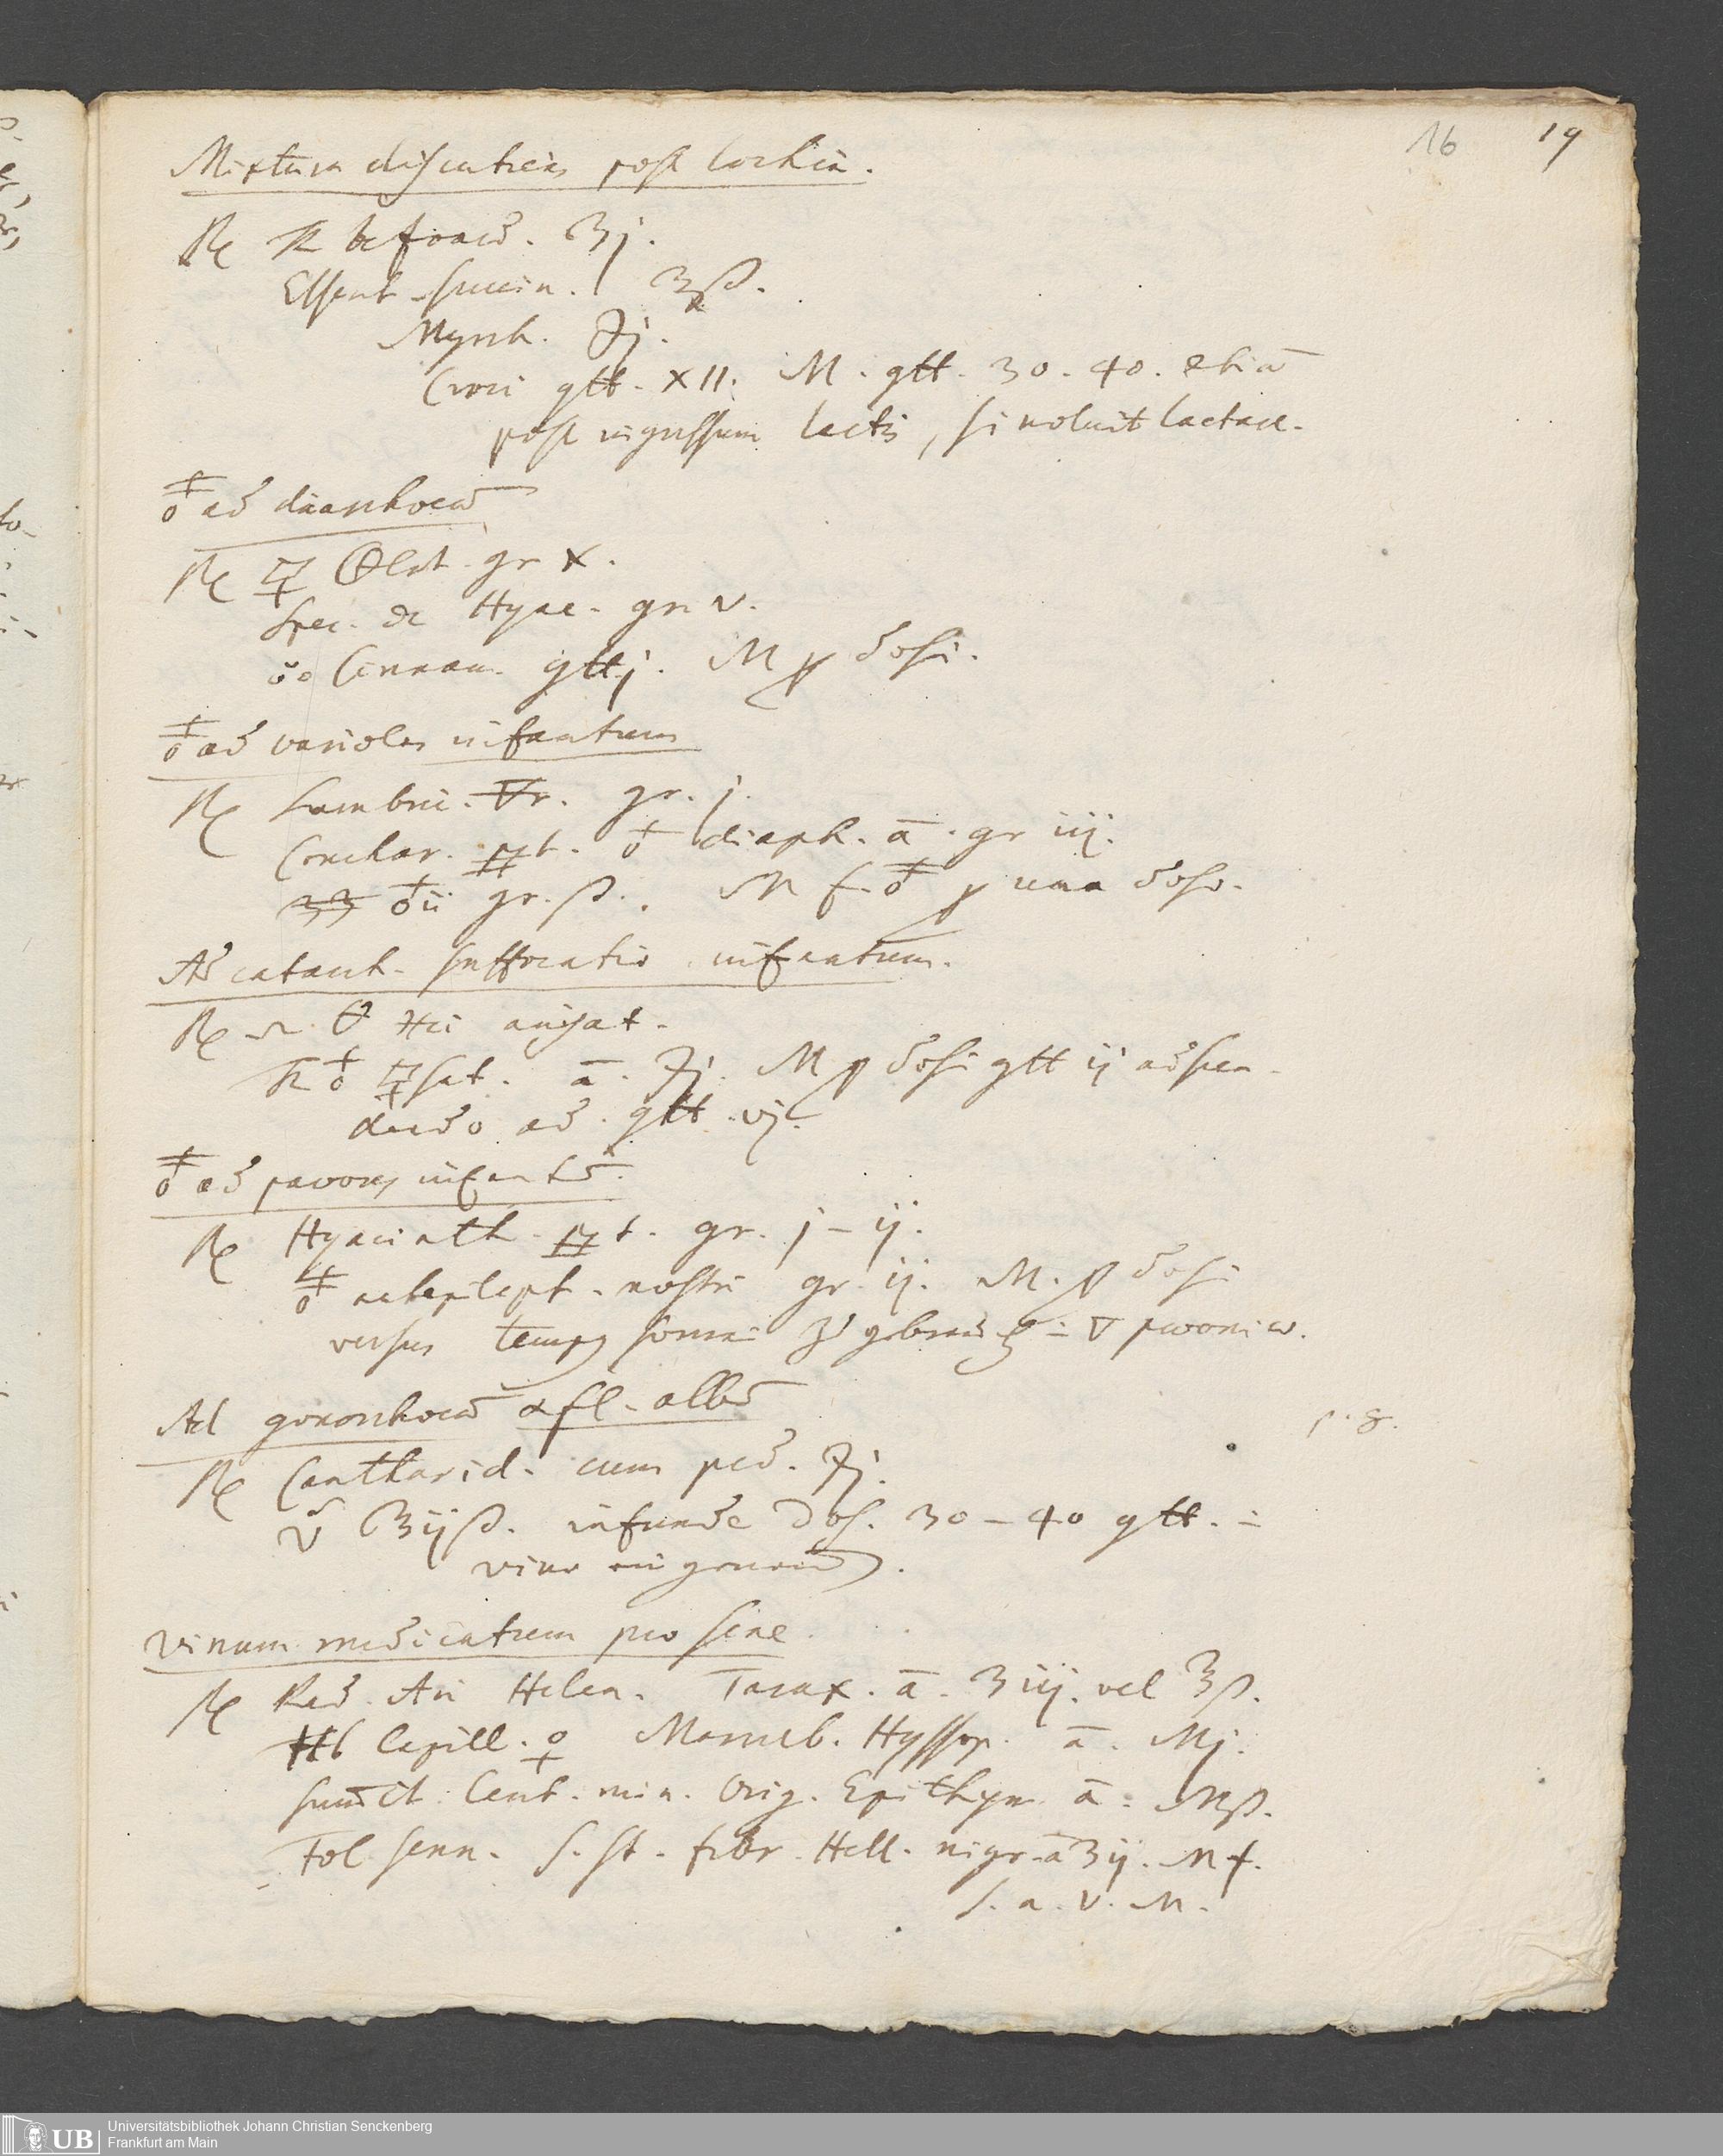 16 19
Mixtura discutiens post lochia.
℞ bezoard. ʒj.
Essent. succin. ʒß.
Myrrh. ℈j.
Croci gtt. XII. M. gtt. 30. 40. etiā
post ingressum lactis, si noluit lactare.
ad diarrhoeā
℞ gr X.
Spec. de Hyac. gr. V.
Cinnam. gttj. M p dosi.
ad variolas infantum
℞ Lumbric. 🜃r. gr. j.
Conchar. ppt. ♁ diaph. ā. gr iij.
gr. ß. M f. p una dosi.
Ad catarrh. suffocativ. infantum.
℞
ā. ℈j. M p dosi gtt ij adscen-
dendo ad gtt. vj.
ad pavores infantū.
℞ Hyacinth. ppt. gr. j – ij.
antepilept. nostri gr. ij. M. p dosi
versus tempus somni
Ad gonorrhoeā & fl. albū
p. 8.
℞ Cantharid. cum ped. ℈j.
ʒijß. infunde Dos. 30 – 40 gtt.
vino
Vinum medicatum pro sene
℞ Rad. Ari Helen. Tarax. ā. ʒiij. vel ℥ß.
Hb Capill. ♀ Marrub. Hyssop. ā. Mj.
Cent. min. Orig. Epithym ā. Mß.
Fol. senn. s. st. fibr. Hell. nigr. ā ʒij. M f.
S. a. V. M.
UB Universitätsbibliothek Johann Christian Senckenberg
Frankfurt am Main